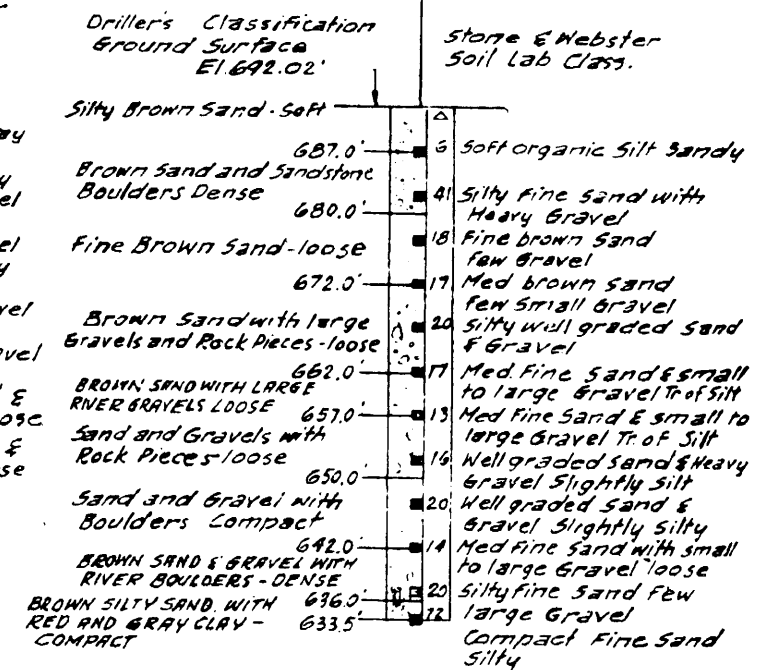 Driller's Classification
Ground Surface
El.692.02'
Stone & Webster
Soil Lab Class.
Silty Brown Sand - Soft
687.0'
Brown Sand and Sandstone
Boulders Dense
680.0'
Fine Brown Sand-loose
672.0'
Brown Sand with large
Gravels and Rock Pieces - loose
662.0'
BROWN SAND WITH LARGE
RIVER GRAVELS LOOSE
657.0'
Sand and Gravels with
Rock Pieces-loose
650.0'
Sand and Gravel with
Boulders Compact
642.0
BROWN SAND & GRAVEL WITH
RIVER BOULDERS - DENSE
636.0'
BROWN SILTY SAND. WITH
RED AND GRAY CLAY -
COMPACT
633.5'
6 Soft organic Silt Sandy
41 Silty Fine Sand with
Heavy Gravel
18 Fine brown Sand
few Gravel
19 Med brown Sand
few Small Gravel
20 Silty well graded Sand
& Gravel
17 Med. Fine Sand & small
to large Gravel Tr of Silt
13 Med Fine Sand & small to
large Gravel Tr. of Silt
16 Well graded Sand & Heavy
Gravel Slightly Silt
20 Well graded Sand &
Gravel Slightly Silty
14 Med Fine Sand with small
to large Gravel loose
20 Silty fine Sand Few
large Gravel
22 Compact Fine Sand
Silty